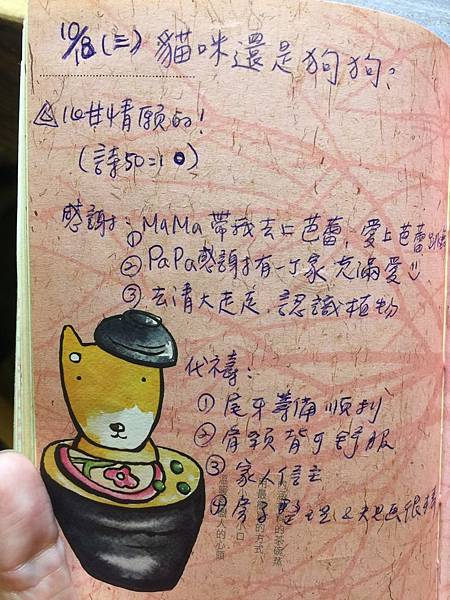 10/18 (三) 貓咪還是狗狗?
心甘情願的!
(詩50=1
感謝:①MaMa帶我去上芭蕾, 愛上芭蕾
②PaPa感謝有一個家充滿愛
③去清大走走,認識植物
代禱:
①尾牙籌備順利
②肩頸背可舒服
③家人信主